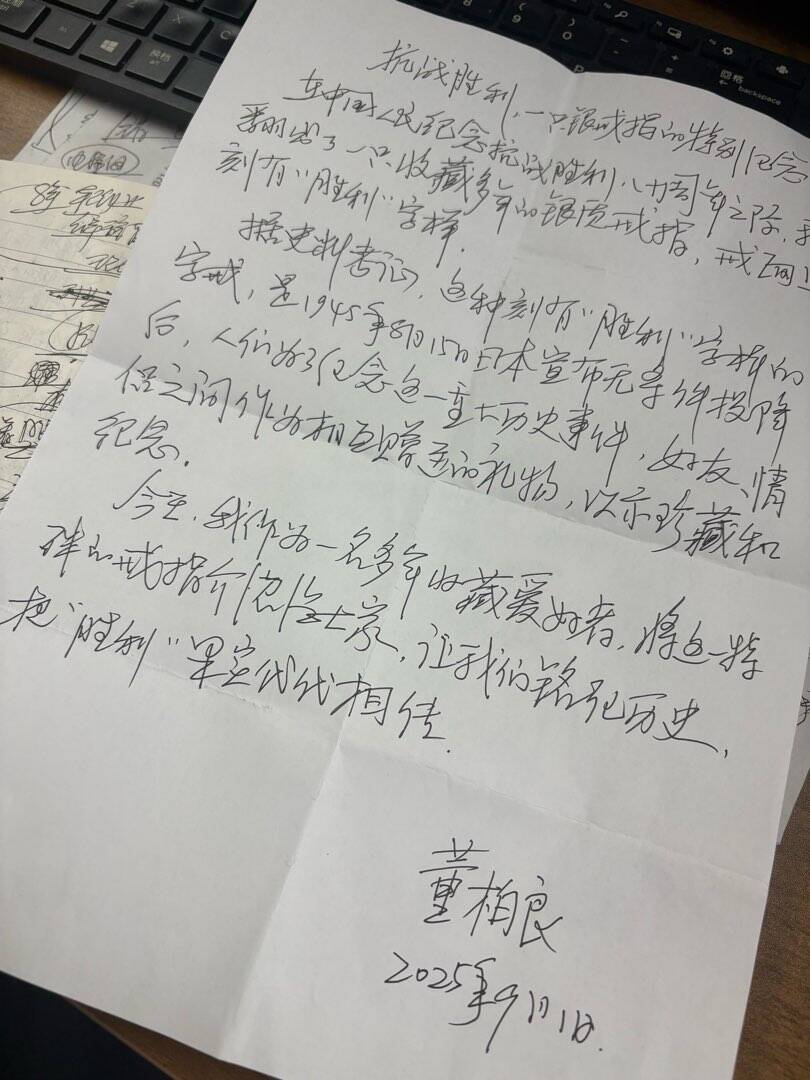 抗战胜利,一只银戒指的特别纪念
在中国人民纪念抗战胜利八十周年之际,我
翻出了一只收藏多年的银质戒指,戒面上
刻有"胜利"字样.
据史料考证,这种刻有"胜利"字样的
字戒,是1945年8月15日日本宣布无条件投降
后,人们为了纪念这一重大历史事件,好友、情
侣之间作为相互赠送的礼物,以示珍藏和
纪念.
今天,我作为一名多年收藏爱好者,将这一特
殊的戒指介绍给大家,让我们铭记历史、
把"胜利"果实代代相传.
董柏良
2025年9月1日.
backspace